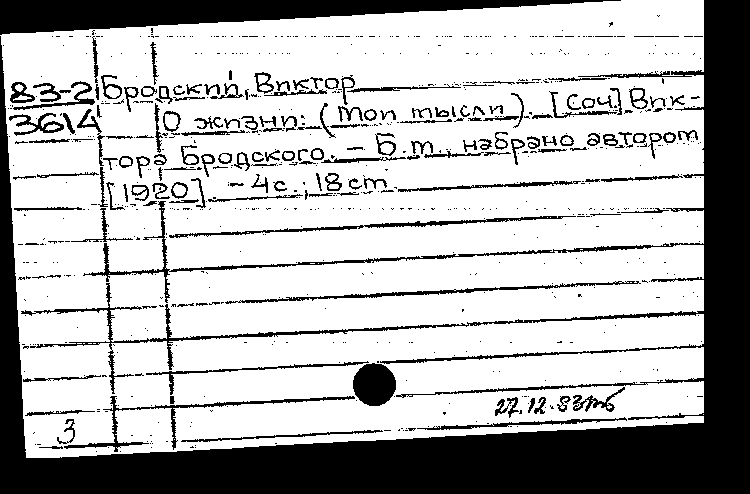 83-2 Бродский, Виктор
3614 О жизни: (Мои мысли). [Соч.] Вик-
тора Бродского. – Б.м., набрано автором
[1920] – 4с.; 18 см.
27.12.83
3